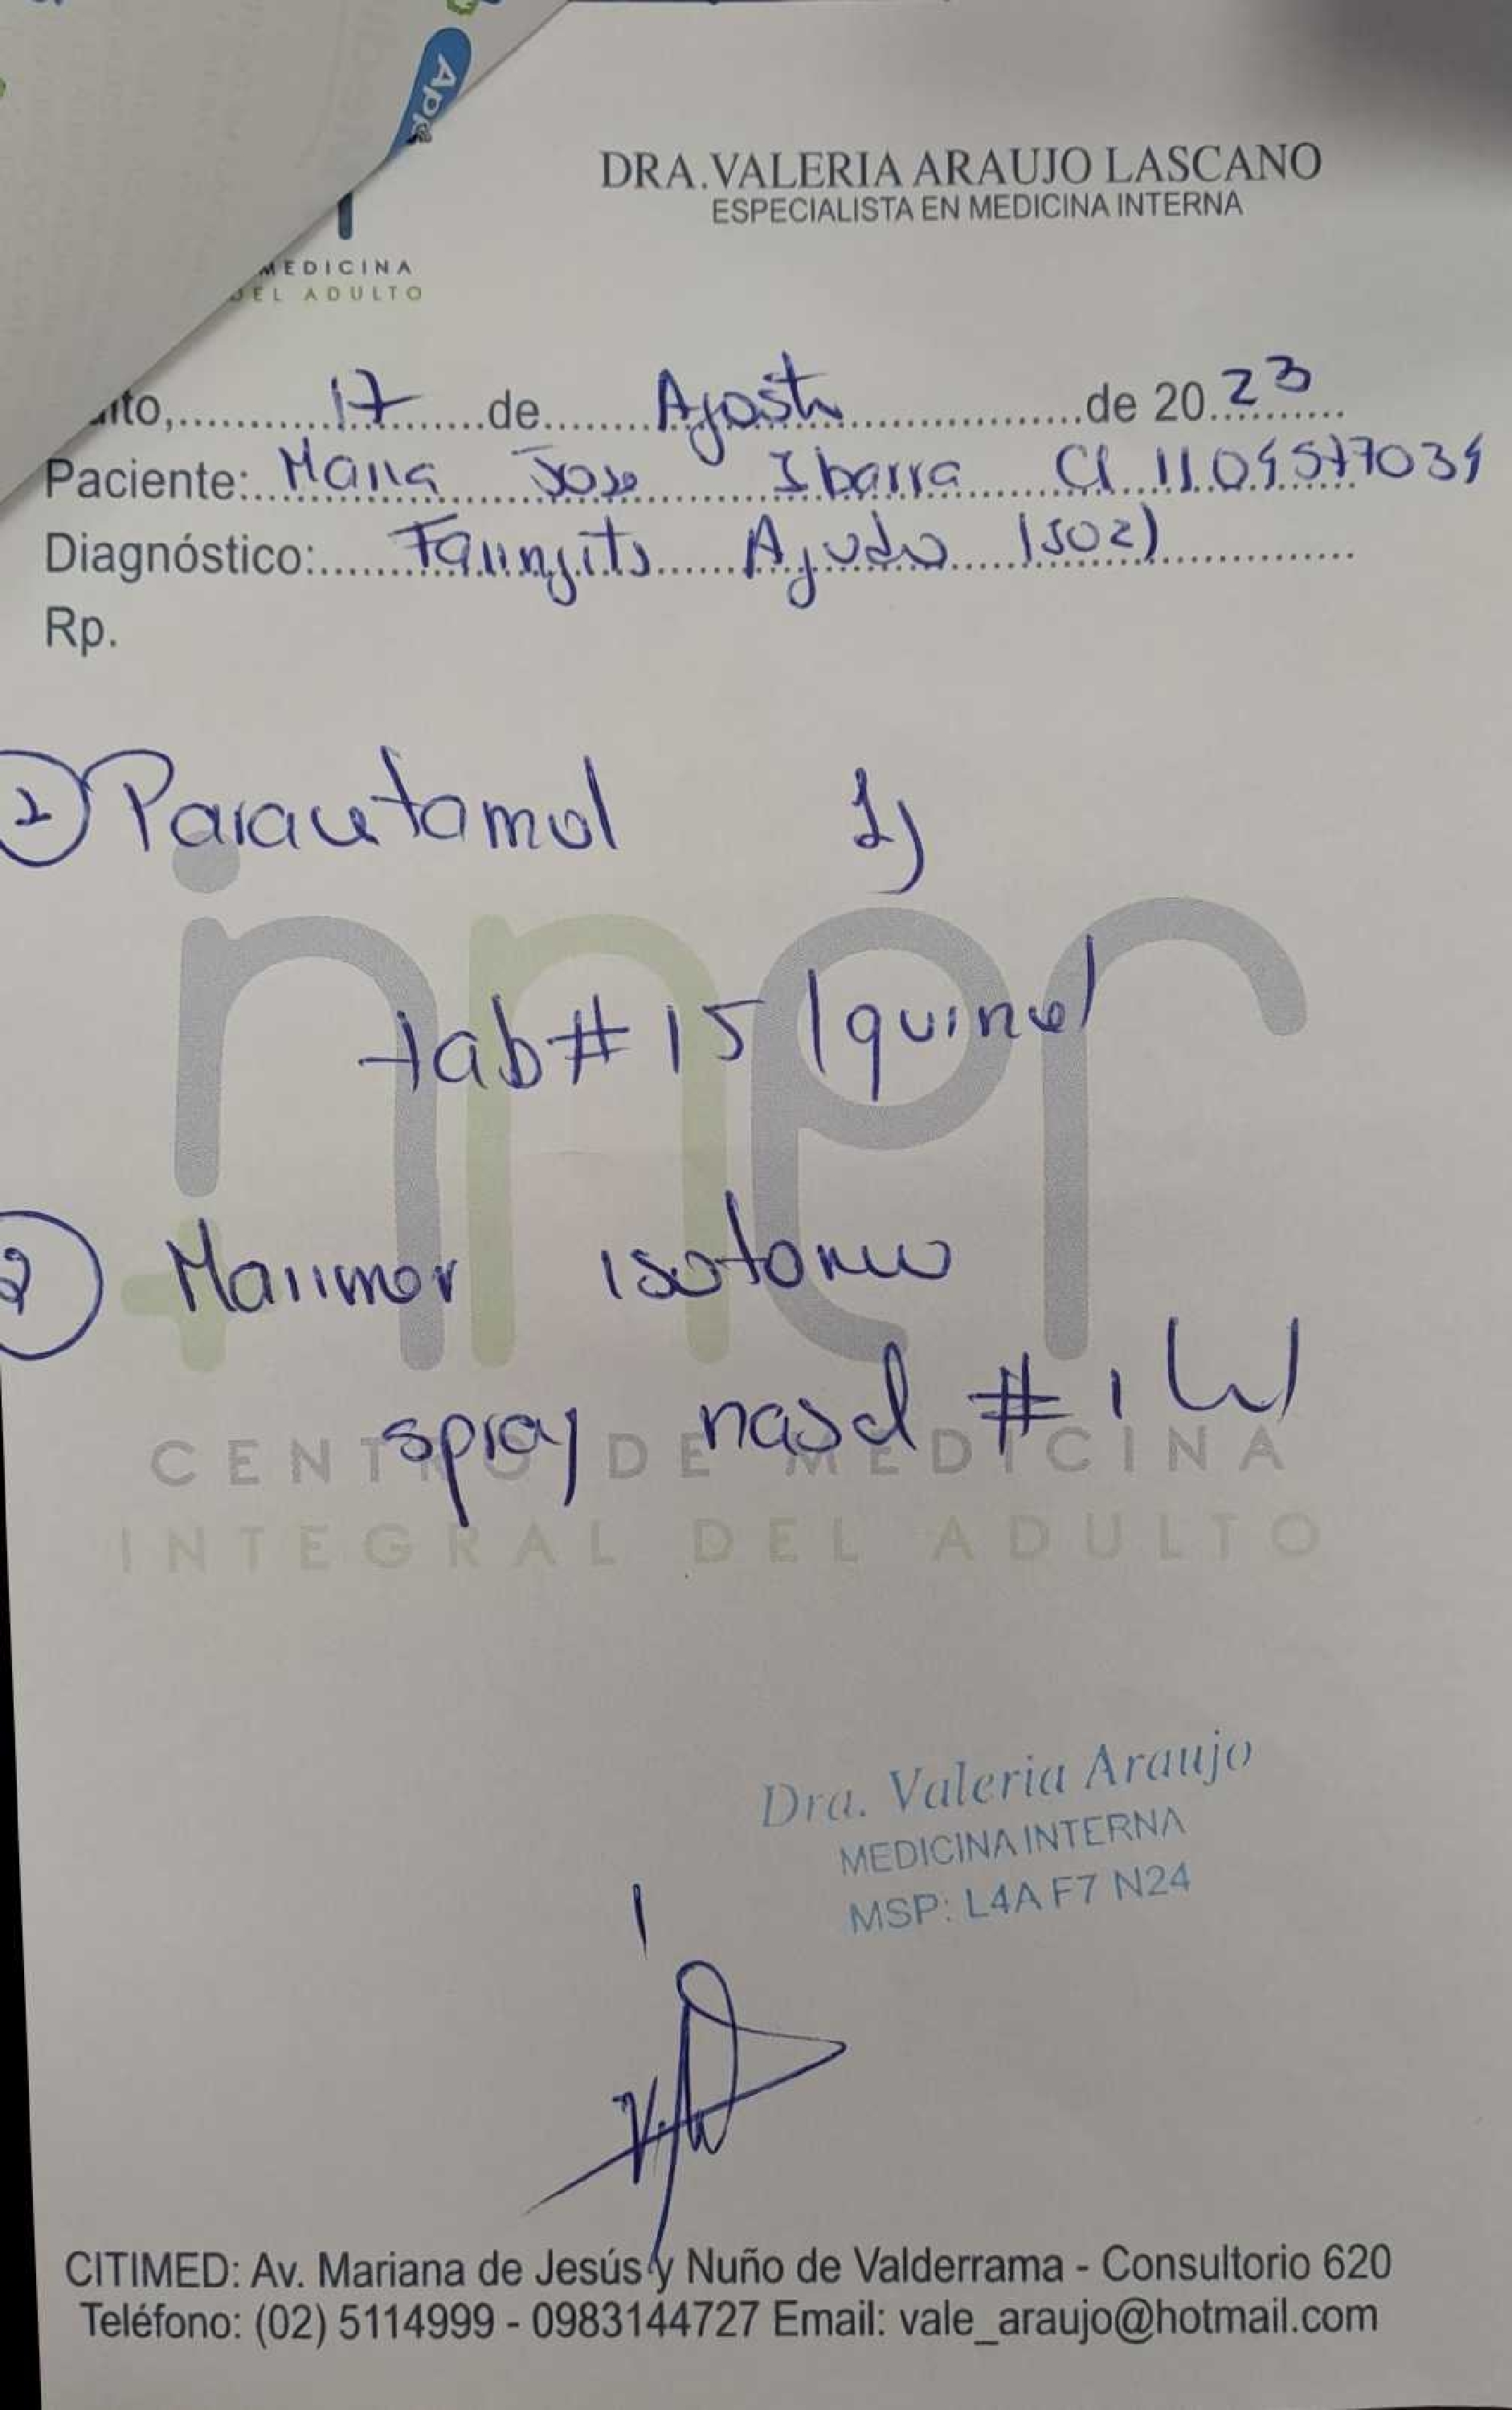 App
DRA. VALERIA ARAUJO LASCANO
ESPECIALISTA EN MEDICINA INTERNA
MEDICINA
DEL ADULTO
ito, 17 de Agosto de 2023
Paciente: Maria Jose Ibarra CI 1104577034
Diagnóstico: Faringitis Aguda (J02)
Rp.
1 Paracetamol 1g
tab # 15 (quince)
2 Marimer isotonico
spray nasal # 1
inner
CENTRO DE MEDICINA
INTEGRAL DEL ADULTO
Dra. Valeria Araujo
MEDICINA INTERNA
MSP: L4A F7 N24
CITIMED: Av. Mariana de Jesús y Nuño de Valderrama - Consultorio 620
Teléfono: (02) 5114999 - 0983144727 Email: vale_araujo@hotmail.com